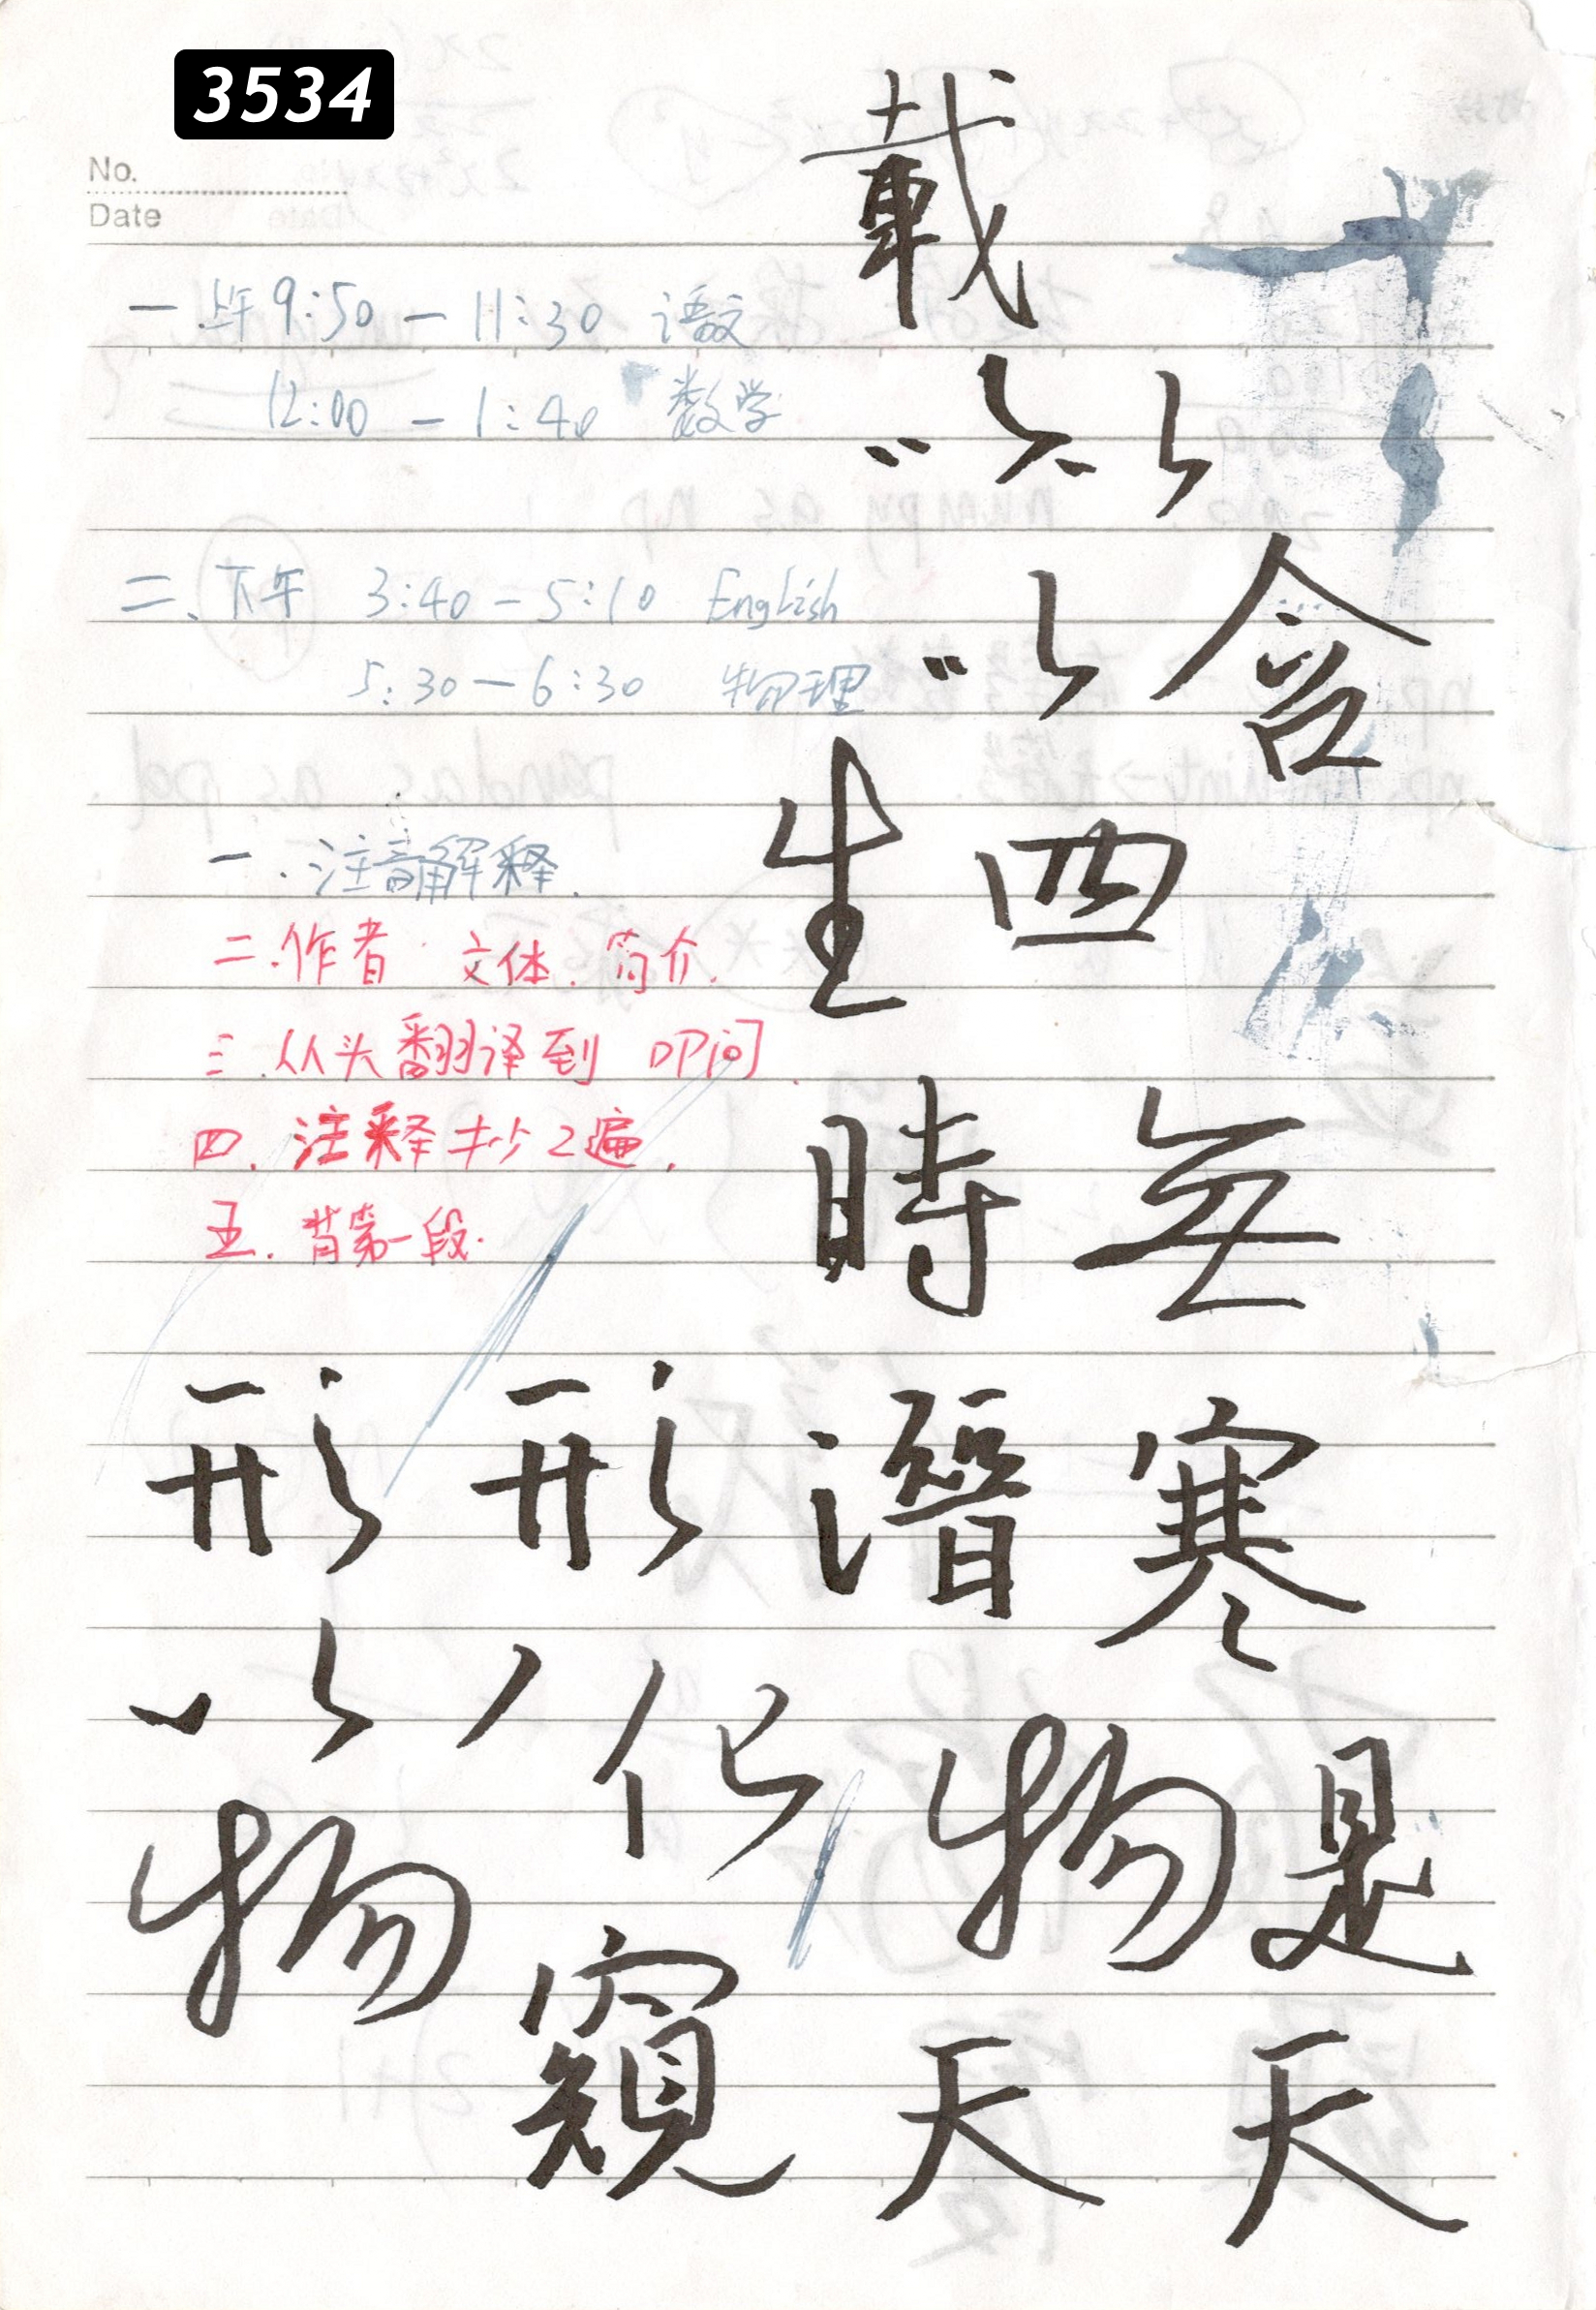 3534
No.
Date
一.上午 9:50 — 11:30 语文
12:00 — 1:40 数学
二、下午 3:40 — 5:10 English
5:30 — 6:30 物理
一.注音解释.
二.作者 文体.简介.
三.从头翻译到 DP问.
四.注释抄2遍.
五.背第一段.
載
以 以
含
以
四
生
無
時
寒
潛
形
形
是
物
化
以
物
天
天
窺